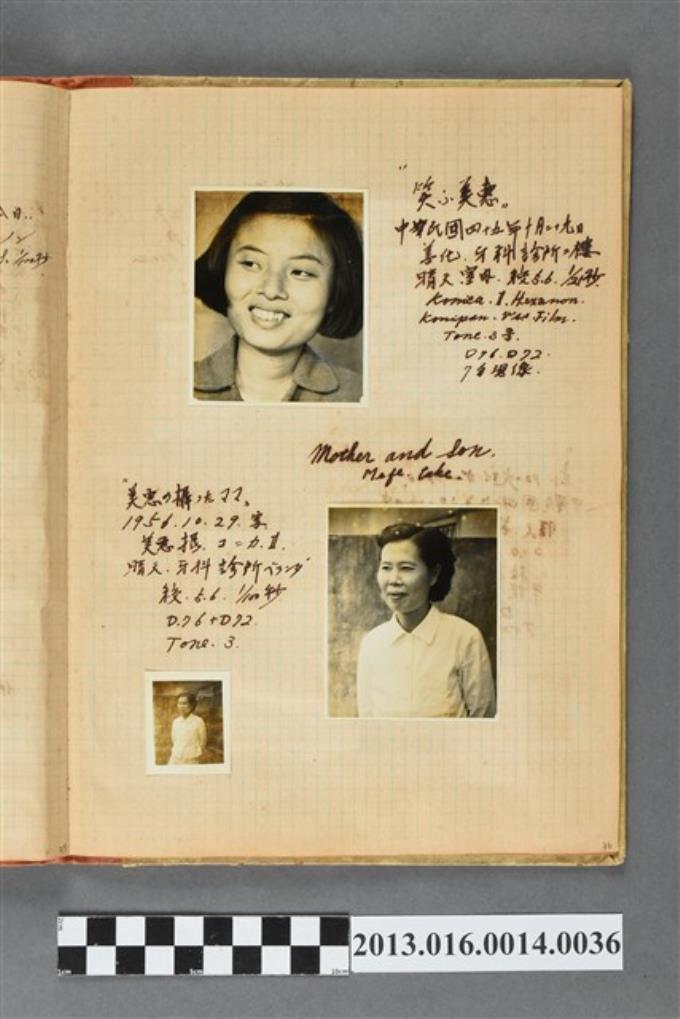 "笑ふ美惠。
中華民国四十五年十月二十九日
善化.牙科診所二樓
晴天 室内.絞5.6. 1/50秒
Konica.Ⅱ.Hexanon.
Konipan. Film.
Tone.3号.
D76.D72.
現像.
Mother and Son.
"美惠の撮つたママ。
1956.10.29.
美惠撮.コニカ.Ⅱ.
晴天.牙科診所ベランダ
絞.5.6. 1/100秒
D76+D72.
Tone.3.
日..
1/100秒
36
2013.016.0014.0036
1cm
5cm
10cm